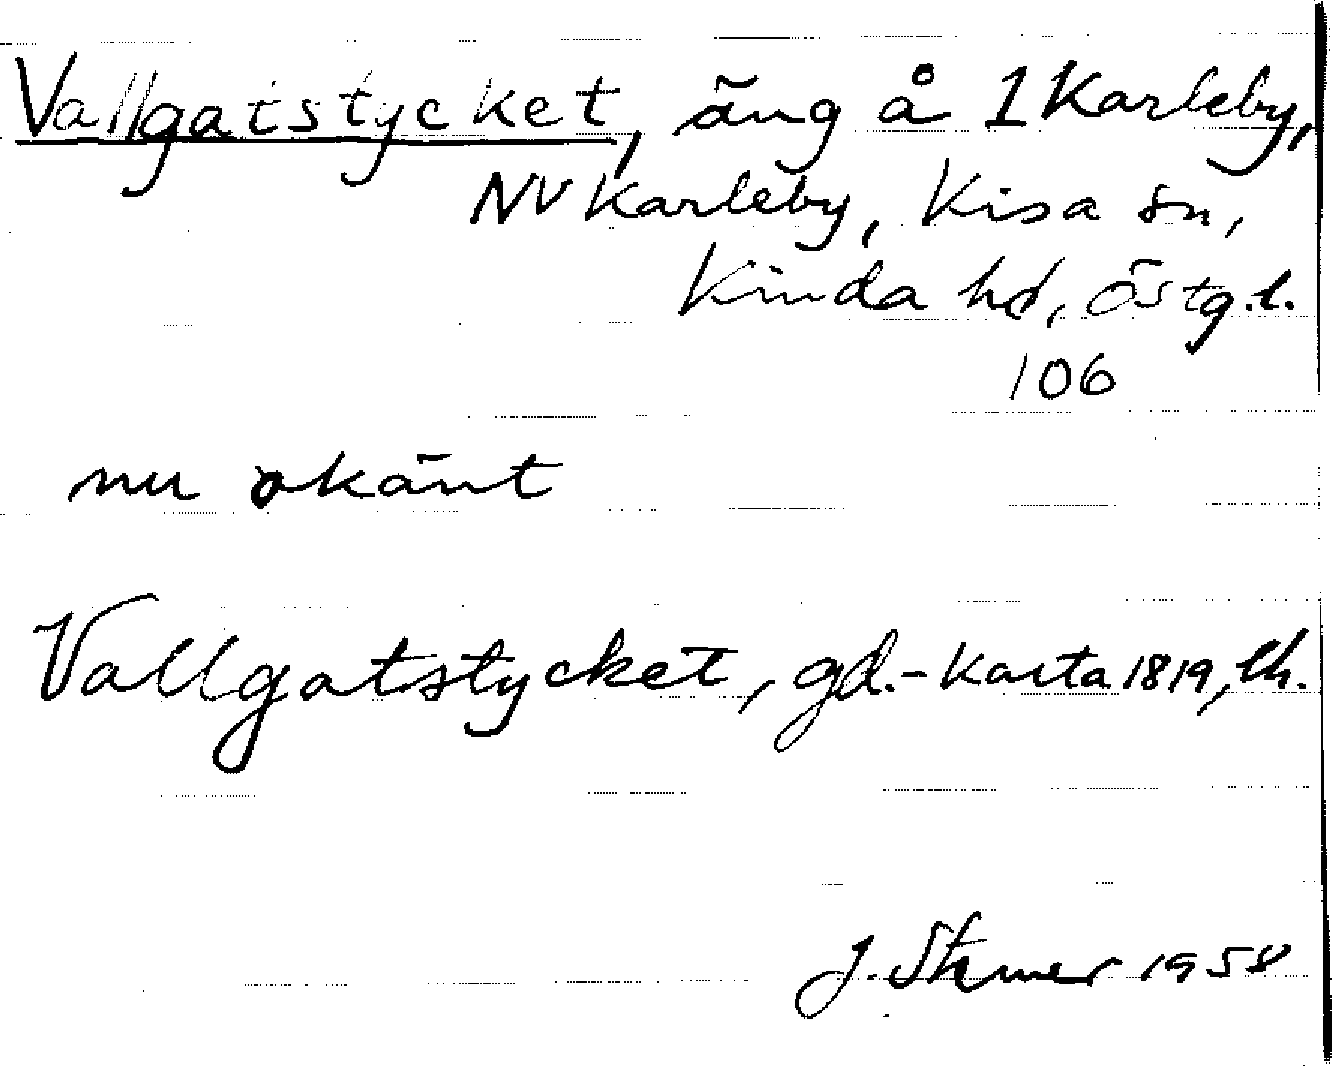 Vallgatstycket, äng å 1 Karleby,
NV Karleby, Kisa sn,
Kinda hd, Östg.l.
106
nu okänt
Vallgatstycket, gd.-karta 1819, lh.
J. 1958